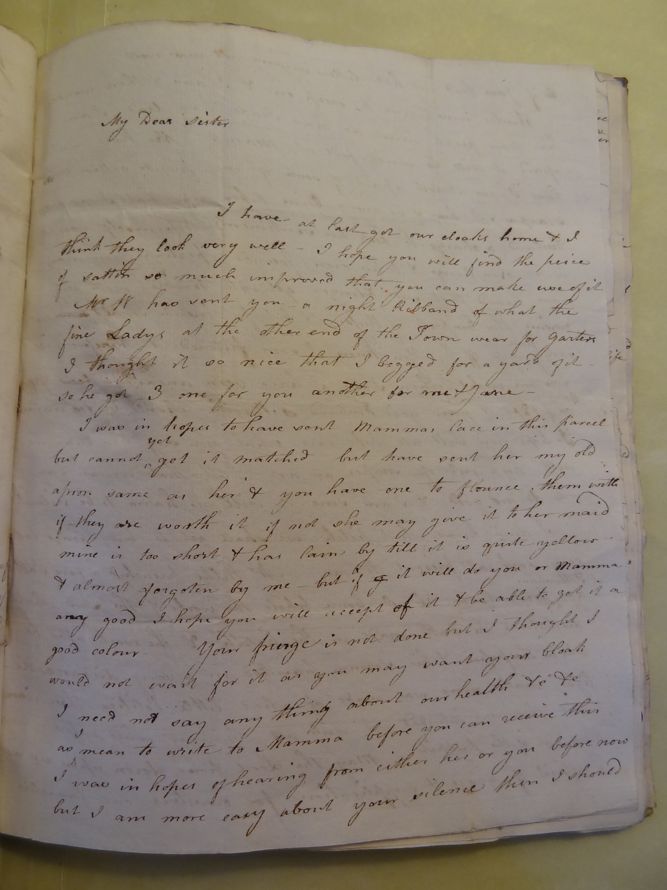 My Dear Sister
I have at last got our cloaks home & I
think they look very well - I hope you will find the peice
of sattin so much improved that you can make use of it
Mr W has sent you a night Ribband of what the
fine Ladys at the other end of the Town wear for garters
I thought it so nice that I begged for a yard of it -
so he got 3 one for you another for me & Jane -
I was in hopes to have sent Mammas lace in this parcel
but cannot yet get it matched but have sent her my old
apron same as her & you have one to flounce them with
if they are worth it if not she may give it to her maid
mine is too short & has lain by till it is quite yellow
& almost forgoten by me - but if it will do you or Mamma
any good I hope you will accept of it & be able to get it a
good colour Your fringe is not done but I thought I
would not wait for it as you may want your Cloak
I need not say any thing about our health &c &c
as I mean to write to Mamma before you can receive this
I was in hopes of hearing from either her or you before now
but I am more easy about your silence then I should